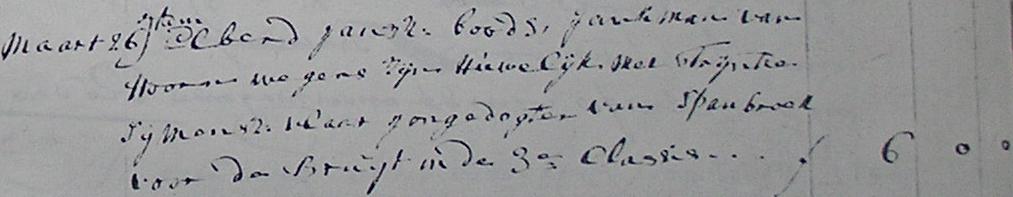 Maart 26 jansz. boods, jonkman van
Hoorn wegens Zijn Huwelijk Met Trijntie
Sijmonsz. vlaar jongedogter van Spanbroek
voor de Bruijt in de 3e Classis . . . f 6 0 0